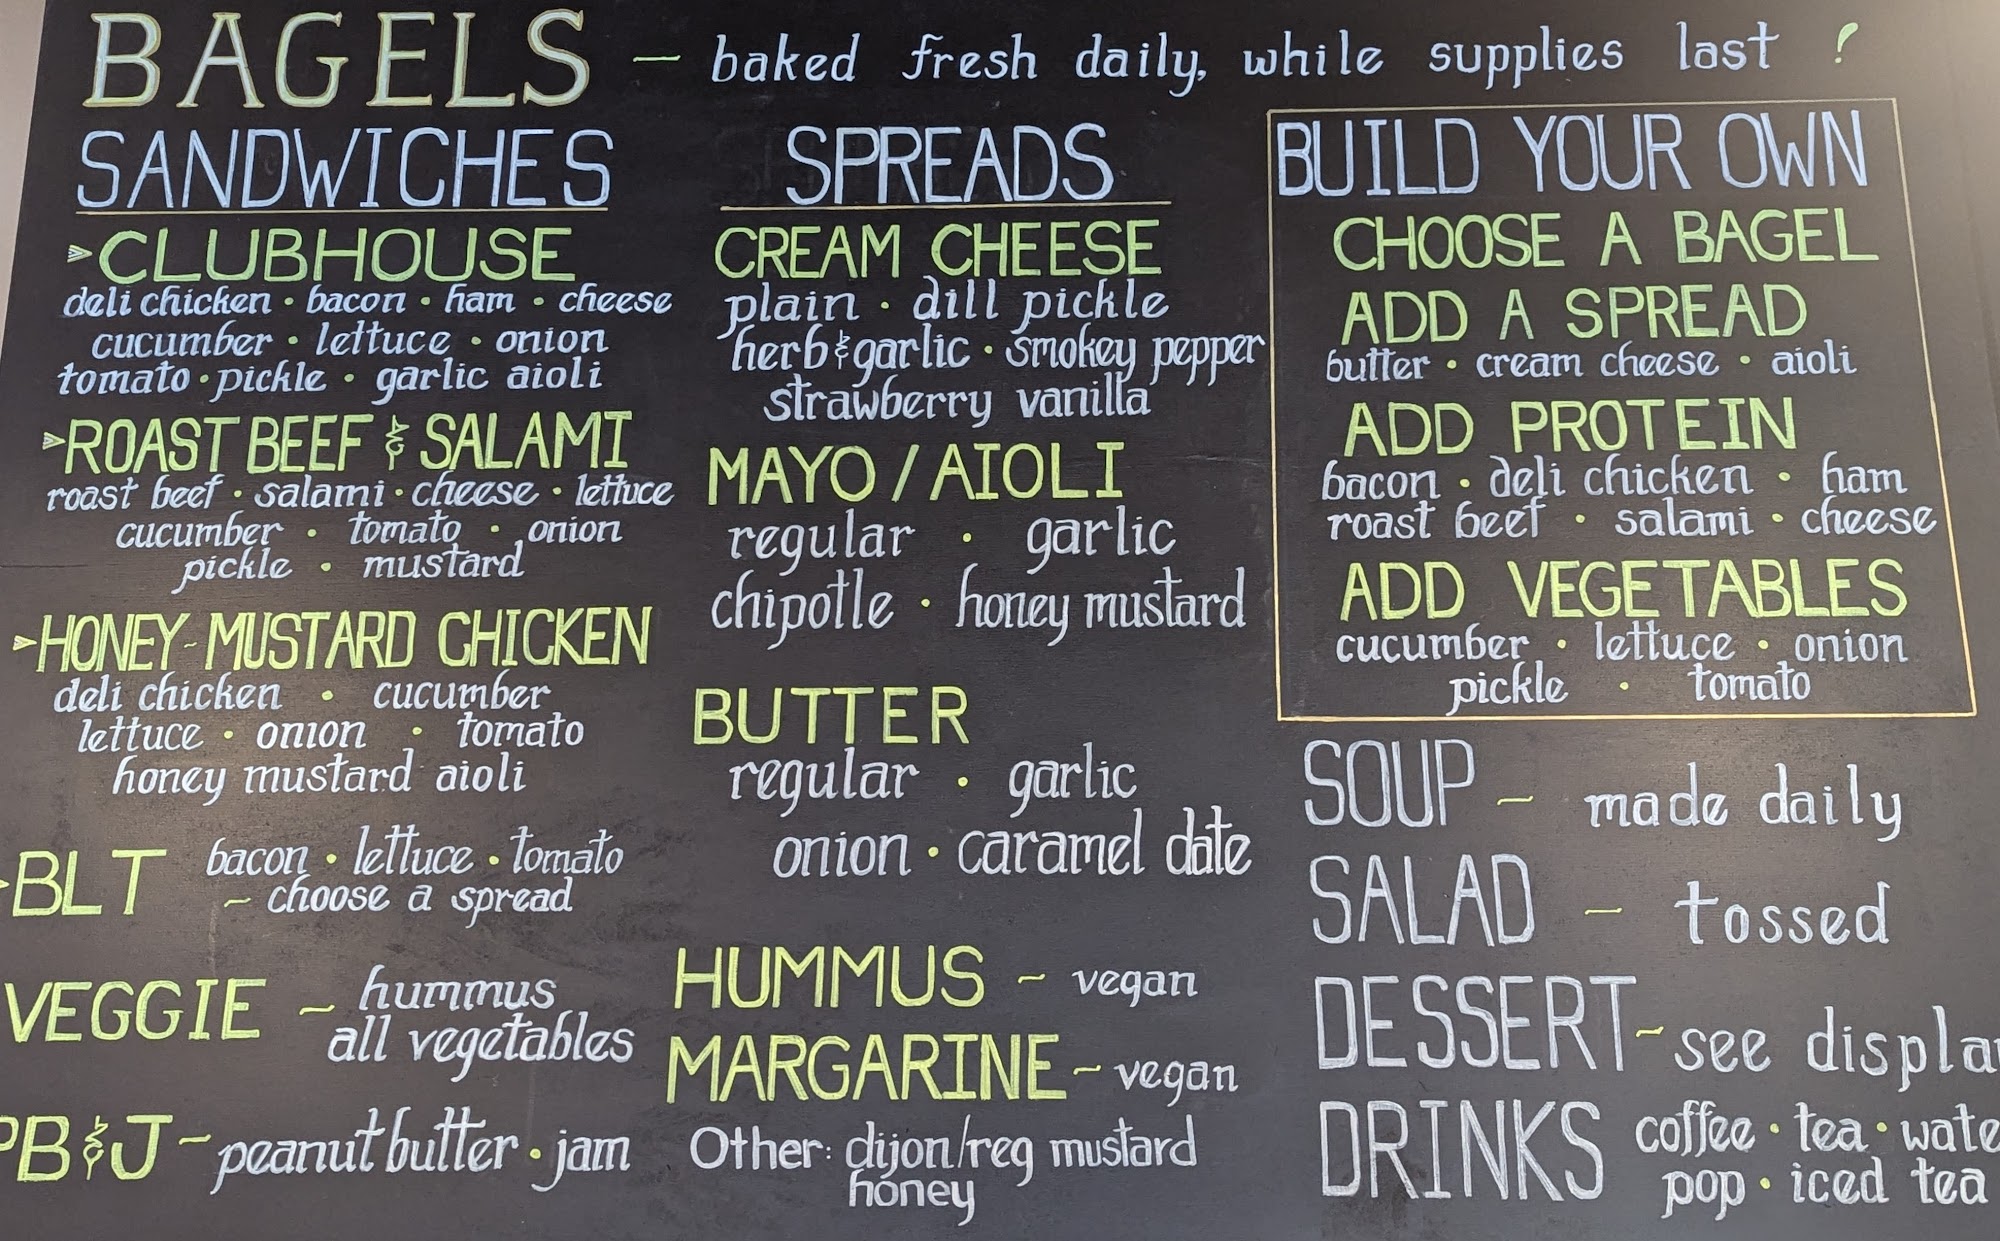 BAGELS — baked fresh daily, while supplies last !
SANDWICHES
CLUBHOUSE
deli chicken • bacon • ham • cheese
cucumber • lettuce • onion
tomato • pickle • garlic aioli
ROAST BEEF & SALAMI
roast beef • salami • cheese • lettuce
cucumber • tomato • onion
pickle • mustard
HONEY-MUSTARD CHICKEN
deli chicken • cucumber
lettuce • onion • tomato
honey mustard aioli
BLT bacon • lettuce • tomato
~ choose a spread
VEGGIE ~ hummus
all vegetables
PB&J ~ peanut butter • jam
SPREADS
CREAM CHEESE
plain • dill pickle
herb & garlic • smokey pepper
strawberry vanilla
MAYO / AIOLI
regular • garlic
chipotle • honey mustard
BUTTER
regular • garlic
onion • caramel date
HUMMUS ~ vegan
MARGARINE ~ vegan
Other: dijon/reg mustard
honey
BUILD YOUR OWN
CHOOSE A BAGEL
ADD A SPREAD
butter • cream cheese • aioli
ADD PROTEIN
bacon • deli chicken • ham
roast beef • salami • cheese
ADD VEGETABLES
cucumber • lettuce • onion
pickle • tomato
SOUP ~ made daily
SALAD ~ tossed
DESSERT ~ see displa
DRINKS coffee • tea • wate
pop • iced tea